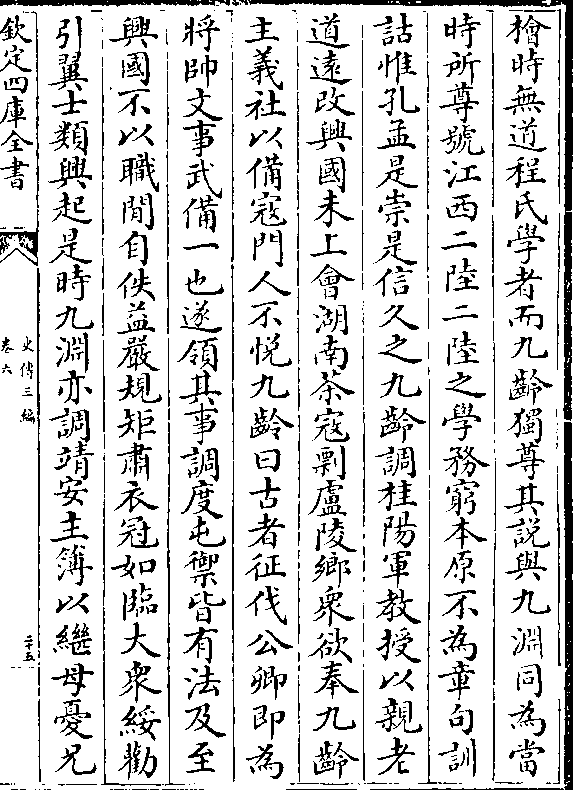 檜時無道程氏學者而九齡獨尊其説與九淵同為當
時所尊號江西二陸二陸之學務窮本原不為章句訓
詁惟孔孟是崇是信久之九齡調桂陽軍教授以親老
道遠改興國未上會湖南茶寇剽廬陵鄉衆欲奉九齡
主義社以備寇門人不悦九齡曰古者征伐公卿即為
將帥文事武備一也遂領其事調度屯禦皆有法及至
興國不以職閒自佚益嚴規矩肅衣冠如臨大衆綏勸
引翼士類興起是時九淵亦調靖安主簿以繼母憂兄
欽定四庫全書
史傳三編
卷六
二十五